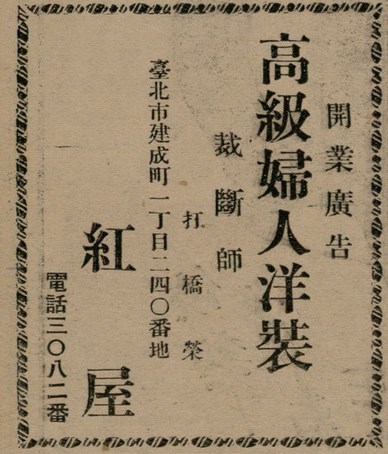 開業廣告
高級婦人洋裝
裁斷師
打橋榮
臺北市建成町一丁目二四〇番地
紅屋
電話三〇八二番